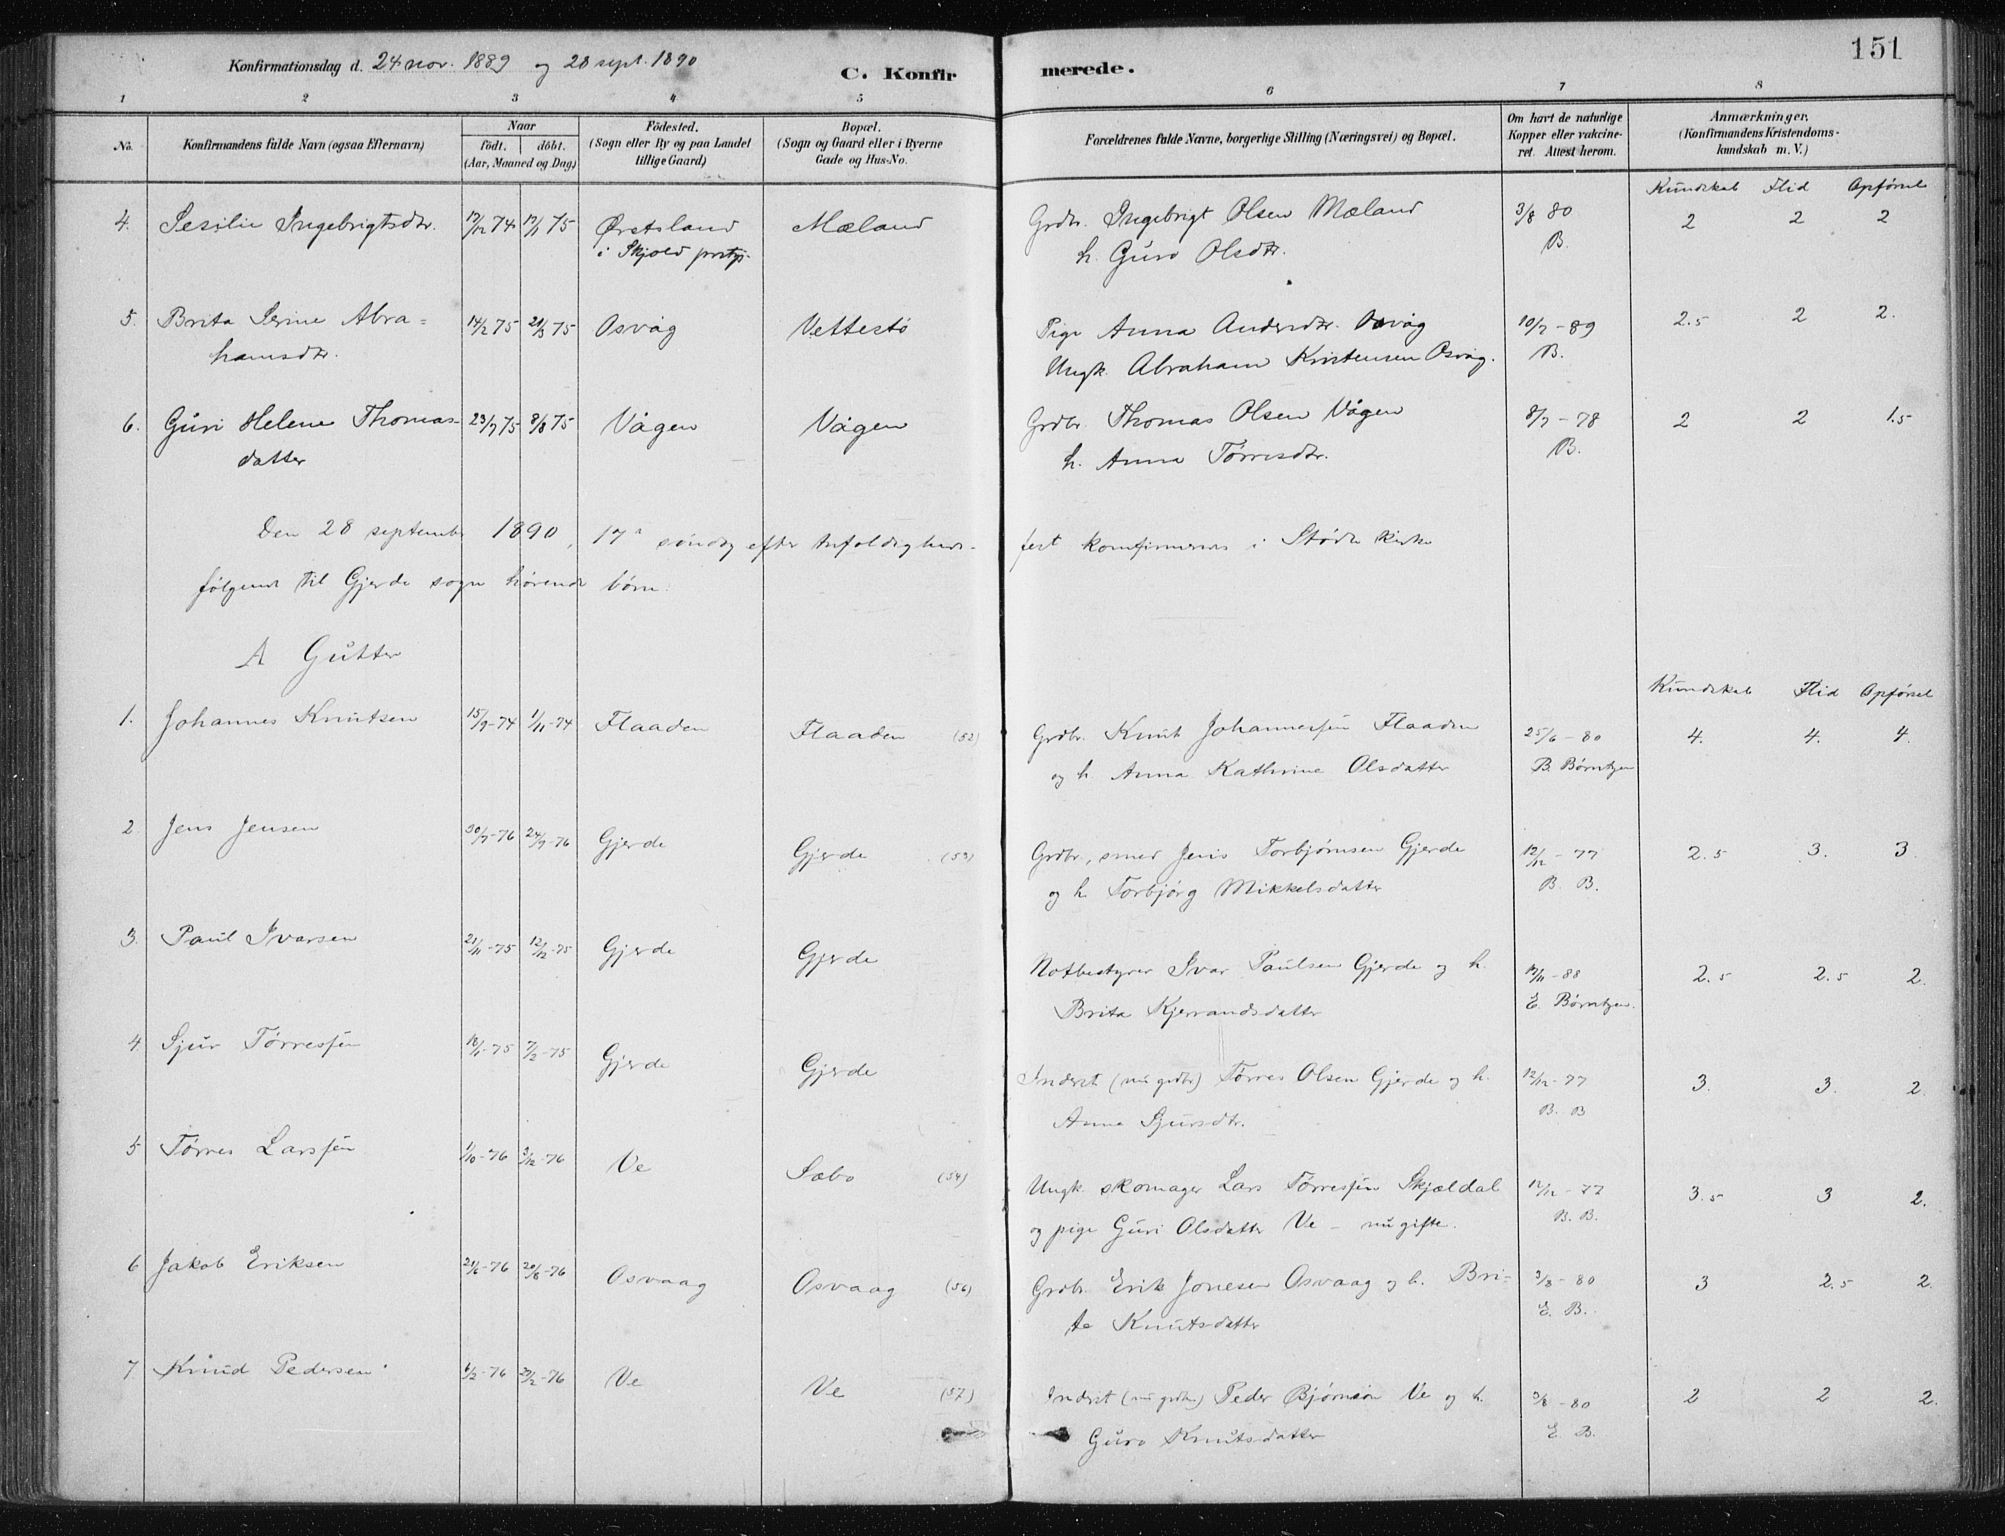 151
Konfirmationsdag d. 24 nov. 1889 og 28 sept. 1890
C. Konfirmerede.
1 2 3 4 5 6 7 8
No.
Konfirmandens fulde Navn (ogsaa Efternavn)
Naar
født. døbt.
(Aar, Maaned og Dag)
Fødested.
(Sogn eller By og paa Landet
tillige Gaard)
Bopæl.
(Sogn og Gaard eller i Byerne
Gade og Hus-No.
Forældrenes fulde Navne, borgerlige Stilling (Næringsvei) og Bopæl.
Om havt de naturlige
Kopper eller vakcine-
ret. Attest herom.
Anmærkninger,
(Konfirmandens Kristendoms-
kundskab m. V.)
Kundskab Flid Opførsel
4. Sesilie Ingebrigtsdtr. 17/12 74 17/1 75 Ørstsland Mæland Grdbr. Ingebrigt Olsen Mæland 3/8 80 2 2 2
i Skjold prstgj. h. Guro Olsdtr. B.
5. Brita Serine Abra= 14/2 75 21/3 75 Osvåg Vettestø Pige Anna Andersdtr. Osvåg 10/7 - 89 2.5 2 2.
hamsdtr. Ungk. Abraham Kristensen Osvåg. B.
6. Guri Helene Thomas- 23/7 75 8/8 75 Vågen Vågen Grdbr. Thomas Olsen Vågen 8/7 - 78 2 2 1.5
datter h. Anna Tørrisdtr. B.
Den 28 september 1890, 17de søndag efter trefoldigheds-
fest konfirmeres i Stødle kirke
følgende til Gjerde sogn hørende børn:
A Gutter
Kundskab Flid Opførsel
1. Johannes Knutsen 15/9-74 1/11-74 Flaaden Flaaden (52) Grdbr. Knut Johannessen Flaaden 25/6 - 80 4. 4. 4.
og h. Anna Kathrine Olsdatter B. Børntzen
2. Jens Jensen 30/7-76 24/9-76 Gjerde Gjerde (53) Grdbr., smed Jens Torbjørnsen Gjerde 12/12 - 77 2.5 3. 3
og h. Torbjørg Mikkelsdatter B. B.
3. Paul Ivarsen 21/11-75 12/12-75 Gjerde Gjerde Notbestyrer Ivar Paulsen Gjerde og h. 19/11 - 88 2.5 2.5 2.
Brita Kjerrandsdatter E. Børntzen.
4. Sjur Tørressen 18/1-75 7/2-75 Gjerde Gjerde Inderst (nu grdbr.) Tørres Olsen Gjerde og h. 12/12 - 77 3. 3. 2.
Anna Sjursdtr. B. B
5 Tørres Larssen 1/10-76 3/12-76 Ve Sæbo (54) Ungk. skomager Lars Tørressen Skjældal 12/12 - 77 3.5 3 2.
og pige Guri Olsdatter Ve - nu gifte. B. B.
6 Jakob Eriksen 21/6-76 20/8-76 Osvaag Osvaag (56) Grdbr. Erik Jonesen Osvaag og h. Bri- 3/8 - 80 3 2.5 2.
ta Knutsdatter E. B.
7 Knud Pedersen 6/2-76 27/2-76 Ve Ve (57) Inderst (nu grdbr.) Peder Bjørnsen Ve og h. 3/8 - 80 2 2 2.
Guro Knutsdatter E. B.